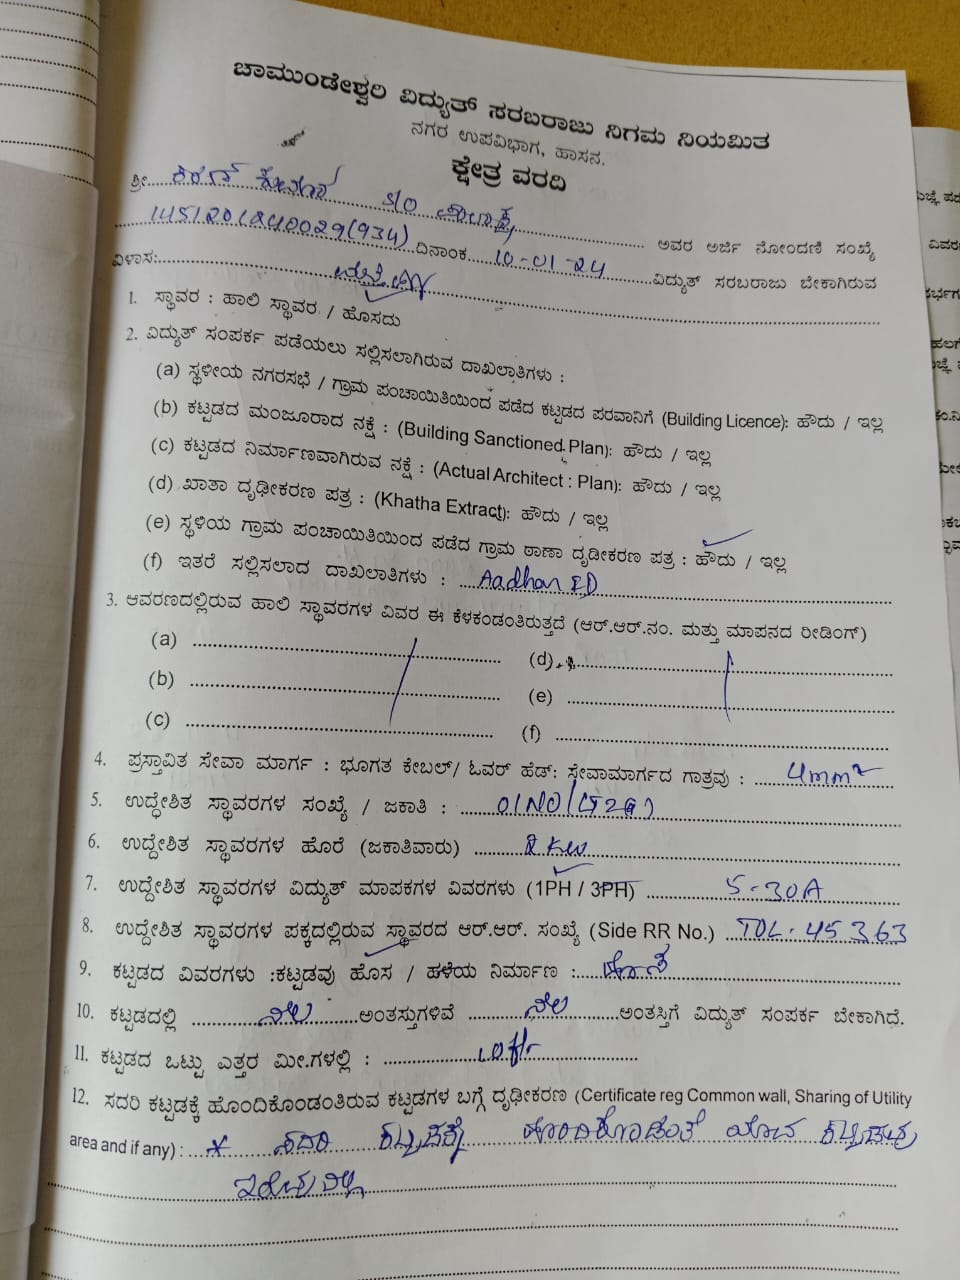 ಚಾಮುಂಡೇಶ್ವರಿ ವಿದ್ಯುತ್ ಸರಬರಾಜು ನಿಗಮ ನಿಯಮಿತ
ನಗರ ಉಪವಿಭಾಗ, ಹಾಸನ.
ಕ್ಷೇತ್ರ ವರದಿ
ಶ್ರೀ. ಕಿರಣ್ S/O
1451201240029(934) ದಿನಾಂಕ 10-01-24 ಅವರ ಅರ್ಜಿ ನೋಂದಣಿ ಸಂಖ್ಯೆ
ವಿಳಾಸ: ವಿದ್ಯುತ್ ಸರಬರಾಜು ಬೇಕಾಗಿರುವ
1. ಸ್ಥಾವರ : ಹಾಲಿ ಸ್ಥಾವರ / ಹೊಸದು
2. ವಿದ್ಯುತ್ ಸಂಪರ್ಕ ಪಡೆಯಲು ಸಲ್ಲಿಸಲಾಗಿರುವ ದಾಖಲಾತಿಗಳು :
(a) ಸ್ಥಳೀಯ ನಗರಸಭೆ / ಗ್ರಾಮ ಪಂಚಾಯಿತಿಯಿಂದ ಪಡೆದ ಕಟ್ಟಡದ ಪರವಾನಿಗೆ (Building Licence): ಹೌದು / ಇಲ್ಲ
(b) ಕಟ್ಟಡದ ಮಂಜೂರಾದ ನಕ್ಷೆ : (Building Sanctioned Plan): ಹೌದು / ಇಲ್ಲ
(c) ಕಟ್ಟಡದ ನಿರ್ಮಾಣವಾಗಿರುವ ನಕ್ಷೆ : (Actual Architect : Plan): ಹೌದು / ಇಲ್ಲ
(d) ಖಾತಾ ದೃಢೀಕರಣ ಪತ್ರ : (Khatha Extract): ಹೌದು / ಇಲ್ಲ
(e) ಸ್ಥಳಿಯ ಗ್ರಾಮ ಪಂಚಾಯಿತಿಯಿಂದ ಪಡೆದ ಗ್ರಾಮ ಠಾಣಾ ದೃಡೀಕರಣ ಪತ್ರ : ಹೌದು / ಇಲ್ಲ
(f) ಇತರೆ ಸಲ್ಲಿಸಲಾದ ದಾಖಲಾತಿಗಳು : Aadhar ID
3. ಆವರಣದಲ್ಲಿರುವ ಹಾಲಿ ಸ್ಥಾವರಗಳ ವಿವರ ಈ ಕೆಳಕಂಡಂತಿರುತ್ತದೆ (ಆರ್.ಆರ್.ನಂ. ಮತ್ತು ಮಾಪನದ ರೀಡಿಂಗ್)
(a) (d)
(b) (e)
(c) (f)
4. ಪ್ರಸ್ತಾವಿತ ಸೇವಾ ಮಾರ್ಗ : ಭೂಗತ ಕೇಬಲ್/ ಓವರ್ ಹೆಡ್: ಸೇವಾಮಾರ್ಗದ ಗಾತ್ರವು : 4mm²
5. ಉದ್ದೇಶಿತ ಸ್ಥಾವರಗಳ ಸಂಖ್ಯೆ / ಜಕಾತಿ : 01NO
6. ಉದ್ದೇಶಿತ ಸ್ಥಾವರಗಳ ಹೊರೆ (ಜಕಾತಿವಾರು)
7. ಉದ್ದೇಶಿತ ಸ್ಥಾವರಗಳ ವಿದ್ಯುತ್ ಮಾಪಕಗಳ ವಿವರಗಳು (1PH / 3PH) 5-30A
8. ಉದ್ದೇಶಿತ ಸ್ಥಾವರಗಳ ಪಕ್ಕದಲ್ಲಿರುವ ಸ್ಥಾವರದ ಆರ್.ಆರ್. ಸಂಖ್ಯೆ (Side RR No.) TDL-45363
9. ಕಟ್ಟಡದ ವಿವರಗಳು :ಕಟ್ಟಡವು ಹೊಸ / ಹಳೆಯ ನಿರ್ಮಾಣ : ಹೊಸ
10. ಕಟ್ಟಡದಲ್ಲಿ ನೆಲ ಅಂತಸ್ತುಗಳಿವೆ ನೆಲ ಅಂತಸ್ತಿಗೆ ವಿದ್ಯುತ್ ಸಂಪರ್ಕ ಬೇಕಾಗಿದೆ.
11. ಕಟ್ಟಡದ ಒಟ್ಟು ಎತ್ತರ ಮೀ.ಗಳಲ್ಲಿ : 10ft
12. ಸದರಿ ಕಟ್ಟಡಕ್ಕೆ ಹೊಂದಿಕೊಂಡಂತಿರುವ ಕಟ್ಟಡಗಳ ಬಗ್ಗೆ ದೃಢೀಕರಣ (Certificate reg Common wall, Sharing of Utility
area and if any) : * ಸದರಿ ಕಟ್ಟಡಕ್ಕೆ ಹೊಂದಿಕೊಂಡಂತೆ ಯಾವ ಕಟ್ಟಡವು
ಇರುವುದಿಲ್ಲ